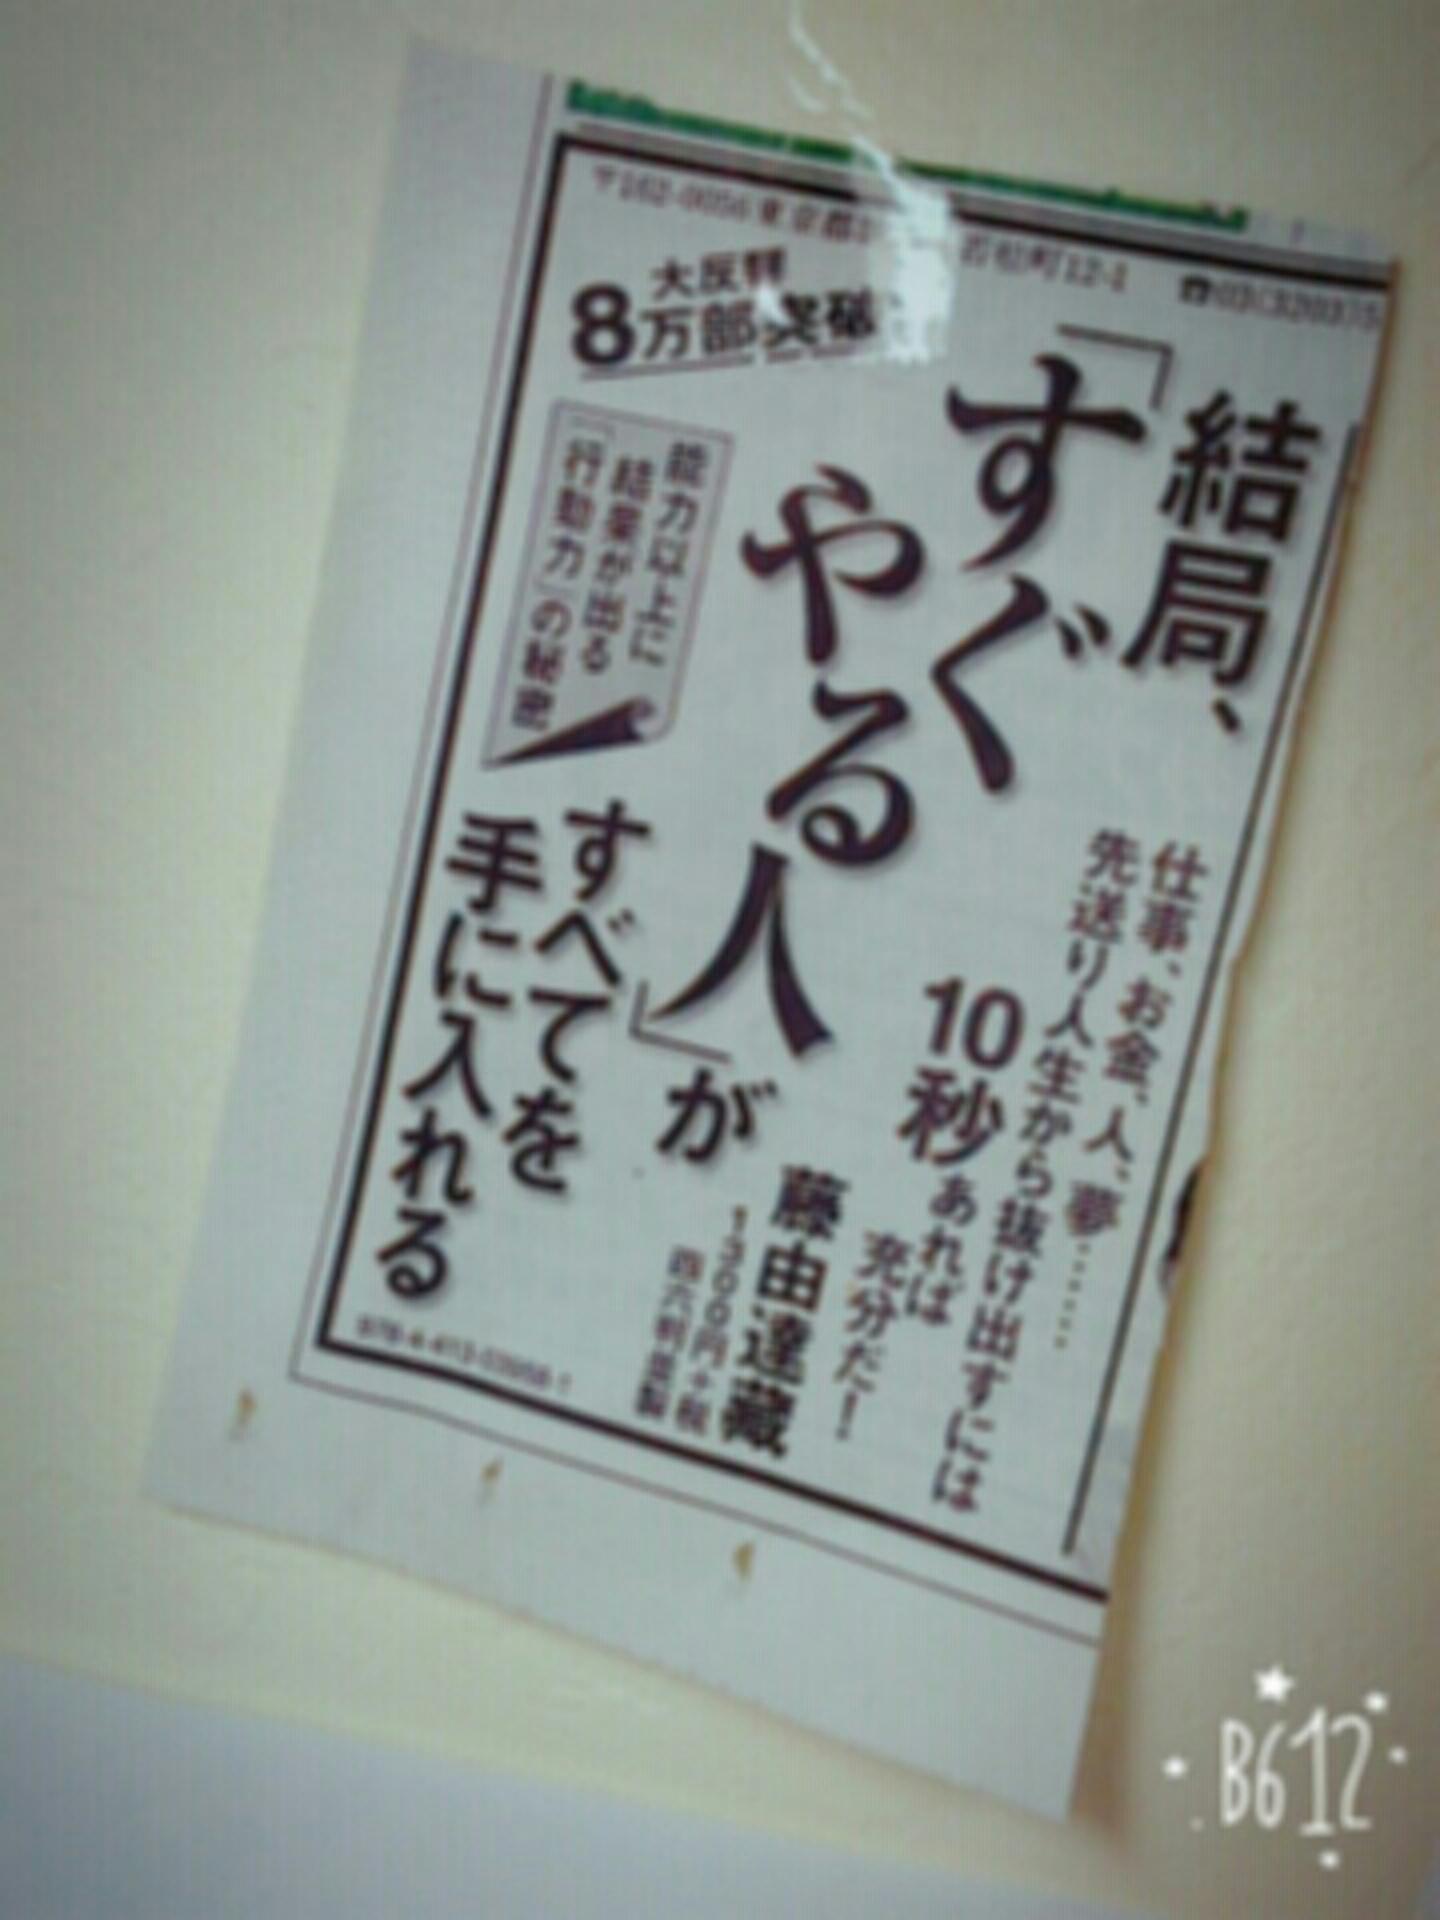 〒162-0056 東京都 若松町12-1 ☎03(3203)5
結局、
「すぐ
やる人」が
すべてを
手に入れる
大反響
8万部突破
能力以上に
結果が出る
「行動力」の秘密
仕事、お金、人、夢……
先送り人生から抜け出すには
10秒あれば
充分だ！
藤由達藏
1300円+税
四六判並製
978-4-413-03958-1
B612